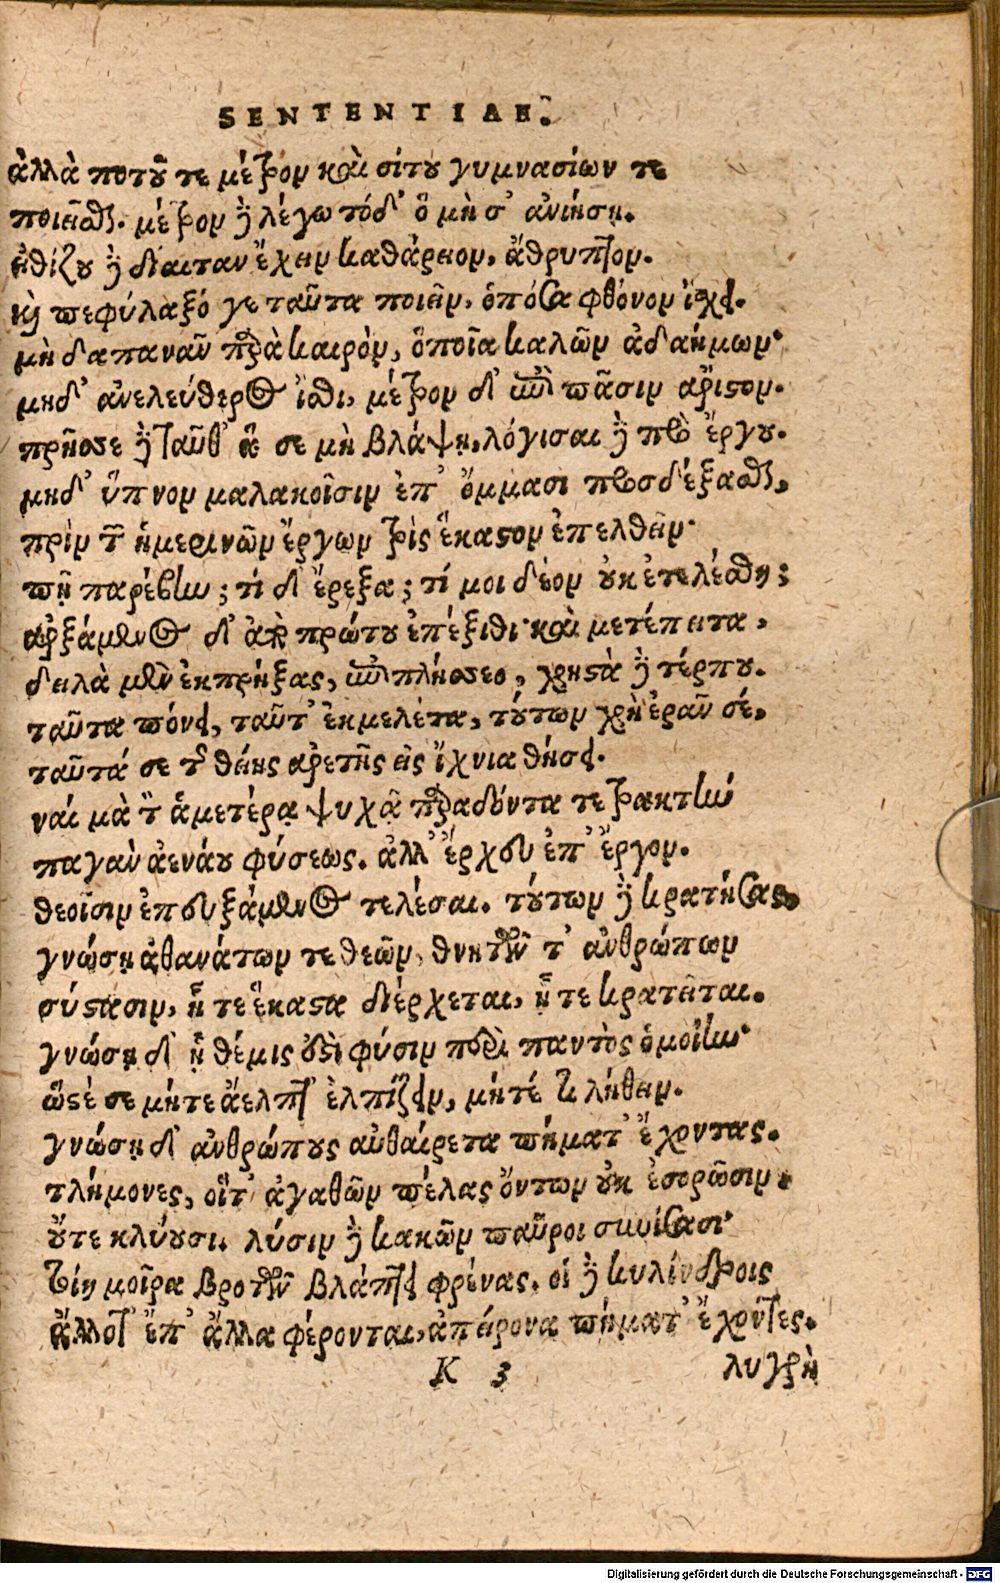 SENTENTIAE.
ἀλλὰ ποτοῦ τε μέτρον καὶ σίτου γυμνασίων τε
ποιεῖσθαι. μέτρον δὲ λέγω τόδ' ὃ μὴ σ' ἀνιήσῃ.
εἰθίζου δὲ δίαιταν ἔχειν καθάρειον, ἄθρυπτον.
καὶ πεφύλαξό γε ταῦτα ποιεῖν, ὁπόσα φθόνον ἴσχει.
μὴ δαπανᾶν παρὰ καιρὸν, ὁποῖα καλῶν ἀδαήμων·
μηδ' ἀνελεύθερος ἴσθι, μέτρον δ' ἐπὶ πᾶσιν ἄριστον.
πρῆσσε δὲ ταῦθ' ἅ σε μὴ βλάψῃ, λόγισαι δὲ πρὸ ἔργου.
μηδ' ὕπνον μαλακοῖσιν ἐπ' ὄμμασι προσδέξασθαι,
πρὶν τῶν ἡμερινῶν ἔργων τρὶς ἕκαστον ἐπελθεῖν·
πῆ παρέβην; τί δ' ἔρεξα; τί μοι δέον οὐκ ἐτελέσθη;
ἀρξάμενος δ' ἀπὸ πρώτου ἐπέξιθι· καὶ μετέπειτα,
δειλὰ μὲν ἐκπρήξας, ἐπιπλήσσεο, χρηστὰ δὲ τέρπου.
ταῦτα πόνει, ταῦτ' ἐκμελέτα, τούτων χρὴ ἐρᾶν σέ,
ταῦτά σε τῆς θείης ἀρετῆς εἰς ἴχνια θήσει.
ναί μὰ τὸν ἁμετέρᾳ ψυχᾷ παραδόντα τετρακτὺν
παγὰν ἀενάου φύσεως. ἀλλ' ἔρχευ ἐπ' ἔργον.
θεοῖσιν ἐπευξάμενος τελέσαι. τούτων δὲ κρατήσας,
γνώσῃ ἀθανάτων τε θεῶν, θνητῶν τ' ἀνθρώπων
σύστασιν, ᾗ τε ἕκαστα διέρχεται, ᾗ τε κρατεῖται.
γνώσῃ δ' ᾗ θέμις ἐστὶ φύσιν περὶ παντὸς ὁμοίην·
ὥστέ σε μήτε ἄελπτ' ἐλπίζειν, μήτέ τι λήθειν.
γνώσῃ δ' ἀνθρώπους αὐθαίρετα πήματ' ἔχοντας.
τλήμονες, οἵ τ' ἀγαθῶν πέλας ὄντων οὐκ ἐσορῶσιν,
οὔτε κλύουσι. λύσιν δὲ κακῶν παῦροι συνίσασι·
τοίη μοῖρα βροτῶν βλάπτει φρένας. οἱ δὲ κυλίνδροις
ἄλλοτ' ἐπ' ἄλλα φέρονται, ἀπείρονα πήματ' ἔχοντες.
K 3 λυγρὴ
Digitalisierung gefördert durch die Deutsche Forschungsgemeinschaft - DFG